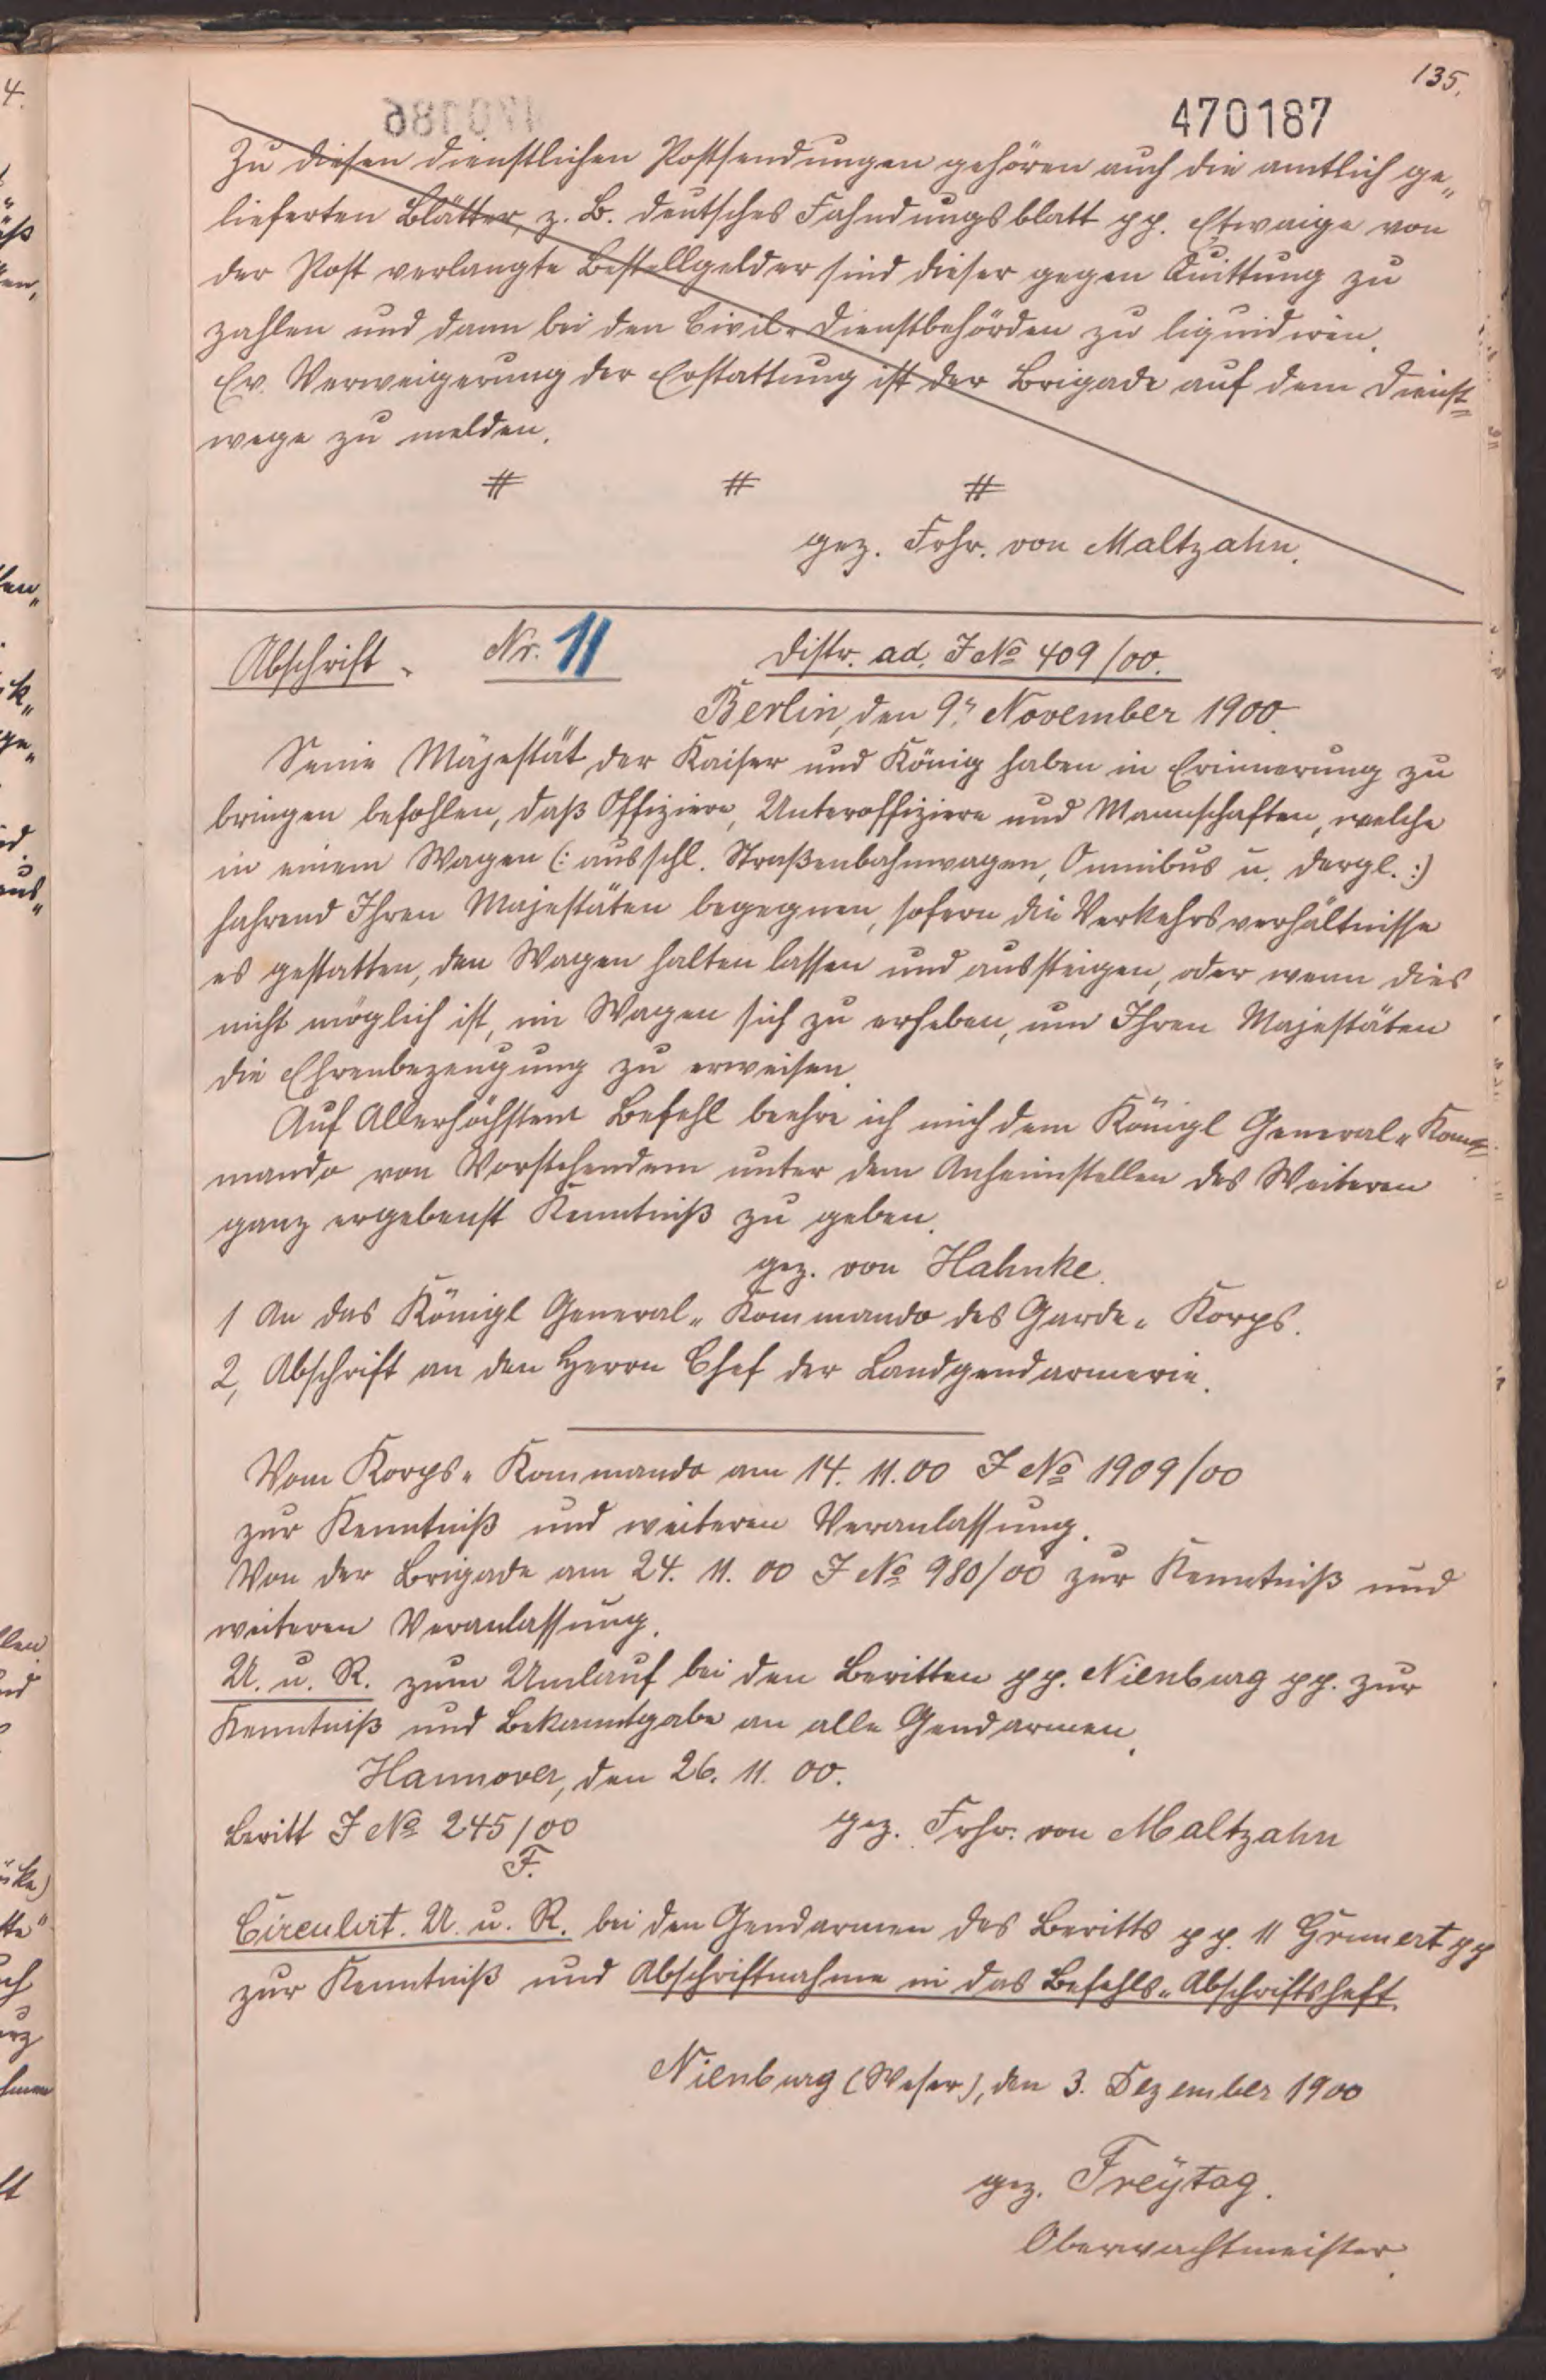 135.
470187
Zu diesen dienstlichen Postsendungen gehören auch die amtlich ge„
lieferten Blätter, z. B. deutsches Fahndungsblatt pp. Etwaige von
der Post verlangte Bestellgelder sind dieser gegen Quittung zu
zahlen und dann bei den Civil„Dienstbehörden zu liquidiren.
Ev. Verweigerung der Erstattung ist der Brigade auf dem Dienst=
wege zu melden.
# # #
gez. Frhr. von Maltzahn.
Abschrift. Nr. 11 Distr. ad. J No 409/00.
Berlin, den 9. November 1900.
Seine Majestät der Kaiser und König haben in Erinnerung zu
bringen befohlen, daß Offiziere, Unteroffiziere und Mannschaften, welche
in einem Wagen (: ausschl. Straßenbahnwagen, Omnibus u. dergl. :)
fahrend Ihren Majestäten begegnen, sofern die Verkehrsverhältnisse
es gestatten, den Wagen halten lassen und aussteigen, oder wenn dies
nicht möglich ist, im Wagen sich zu erheben, um Ihren Majestäten
die Ehrenbezeugung zu erweisen.
Auf Allerhöchstem Befehl beehre ich mich dem Königl General„Kom=
mando von Vorstehendem unter dem Anheimstellen des Weiteren
ganz ergebenst Kenntniß zu geben.
gez. von Hahnke.
1 An das Königl General„Kommando des Garde„Korps.
2, Abschrift an den Herrn Chef der Landgendarmerie.
Vom Korps„Kommando am 14. 11. 00 J No 1909/00
zur Kenntniß und weiteren Veranlassung.
Von der Brigade am 24. 11. 00 J No 980/00 zur Kenntniß und
weiteren Veranlassung.
U. u. R. zum Umlauf bei den Beritten pp. Nienburg pp. zur
Kenntniß und Bekanntgabe an alle Gendarmen.
Hannover, den 26. 11. 00.
Beritt J No 245/00 gez. Frhr. von Maltzahn
F.
Circulirt. U. u. R. bei den Gendarmen des Beritts pp. 11 Grunert pp
zur Kenntniß und Abschriftnahme in das Befehls„Abschriftsheft.
Nienburg (Weser), den 3. Dezember 1900
gez. Freytag.
Oberwachtmeister.